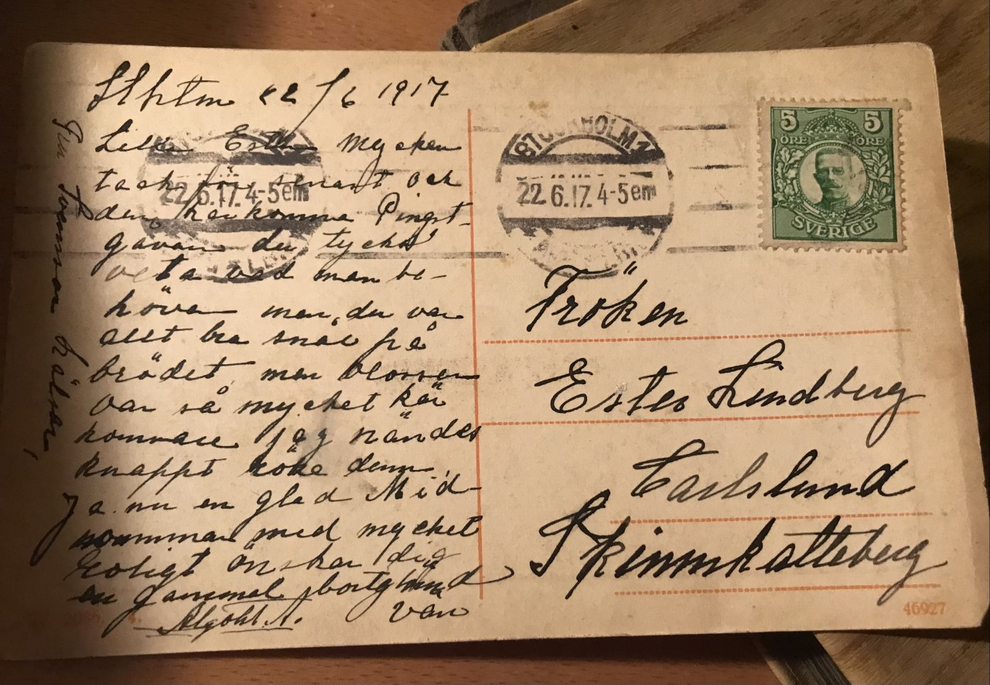 Sthlm 22/6 1917
Lilla Ester Mycken
tack för senast och
den här komna Pingst
gåvan du tycks
veta vad man be-
höver men du var
allt bra snål på
brödet, men blossen
var så mycket kär
komnare jag nändes
knappt röke denn,
Ja nu en glad Mid-
sommar med mycket
Roligt önskar dig
en gammal
vän
Algoht A.
hälsar,
STOCKHOLM 1
22.6.17. 4-5 em
STOCKHOLM 1
22.6.17. 4-5 em
5 5
ÖRE ÖRE
SVERIGE
Fröken
Ester Lindberg
Carlslund
Skinnskatteberg
46927